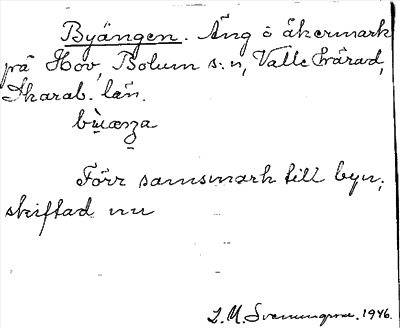 Byängen. Äng o åkermark
på Hov, Bolum s:n, Valle härad,
Skarab. län.
Förr samsmark till byn,
skiftad nu
1946.